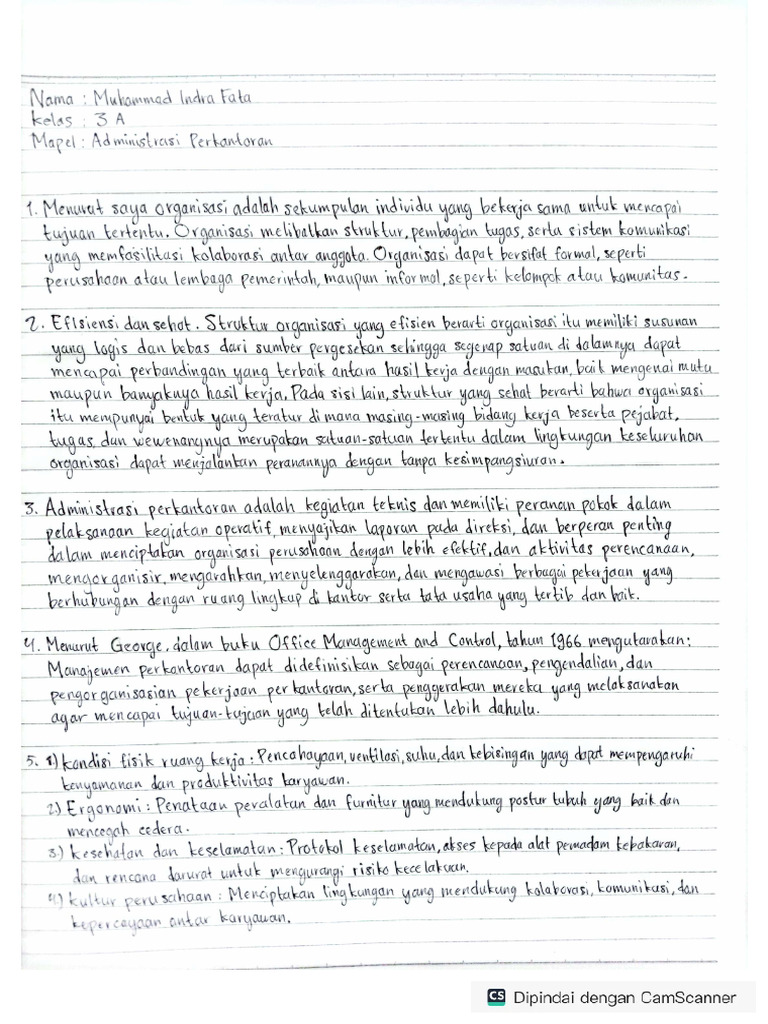 Nama : Muhammad Indra Fata
Kelas : 3 A
Mapel : Administrasi Perkantoran
1. Menurut saya organisasi adalah sekumpulan individu yang bekerja sama untuk mencapai
tujuan tertentu. Organisasi melibatkan struktur, pembagian tugas, serta sistem komunikasi
yang memfasilitasi kolaborasi antar anggota. Organisasi dapat bersifat formal, seperti
perusahaan atau lembaga pemerintah, maupun informal, seperti kelompok atau komunitas.
2. Efisiensi dan sehat. Struktur organisasi yang efisien berarti organisasi itu memiliki susunan
yang logis dan bebas dari sumber pergesekan sehingga segenap satuan di dalamnya dapat
mencapai perbandingan yang terbaik antara hasil kerja dengan masukan, baik mengenai mutu
maupun banyaknya hasil kerja. Pada sisi lain, struktur yang sehat berarti bahwa organisasi
itu mempunyai bentuk yang teratur di mana masing-masing bidang kerja beserta pejabat,
tugas, dan wewenangnya merupakan satuan-satuan tertentu dalam lingkungan keseluruhan
organisasi dapat menjalankan peranannya dengan tanpa kesimpangsiuran.
3. Administrasi perkantoran adalah kegiatan teknis dan memiliki peranan pokok dalam
pelaksanaan kegiatan operatif, menyajikan laporan pada direksi, dan berperan penting
dalam menciptakan organisasi perusahaan dengan lebih efektif, dan aktivitas perencanaan,
mengorganisir, mengarahkan, menyelenggarakan, dan mengawasi berbagai pekerjaan yang
berhubungan dengan ruang lingkup di kantor serta tata usaha yang tertib dan baik.
4. Menurut George, dalam buku Office Management and Control, tahun 1966 mengutarakan:
Manajemen perkantoran dapat didefinisikan sebagai perencanaan, pengendalian, dan
pengorganisasian pekerjaan perkantoran, serta penggerakan mereka yang melaksanakan
agar mencapai tujuan-tujuan yang telah ditentukan lebih dahulu.
5. 1) Kondisi fisik ruang kerja : Pencahayaan, ventilasi, suhu, dan kebisingan yang dapat mempengaruhi
kenyamanan dan produktivitas karyawan.
2) Ergonomi : Penataan peralatan dan furnitur yang mendukung postur tubuh yang baik dan
mencegah cedera.
3) Kesehatan dan keselamatan : Protokol keselamatan, akses kepada alat pemadam kebakaran,
dan rencana darurat untuk mengurangi risiko kecelakaan.
4) Kultur perusahaan : Menciptakan lingkungan yang mendukung kolaborasi, komunikasi, dan
kepercayaan antar karyawan.
CS Dipindai dengan CamScanner